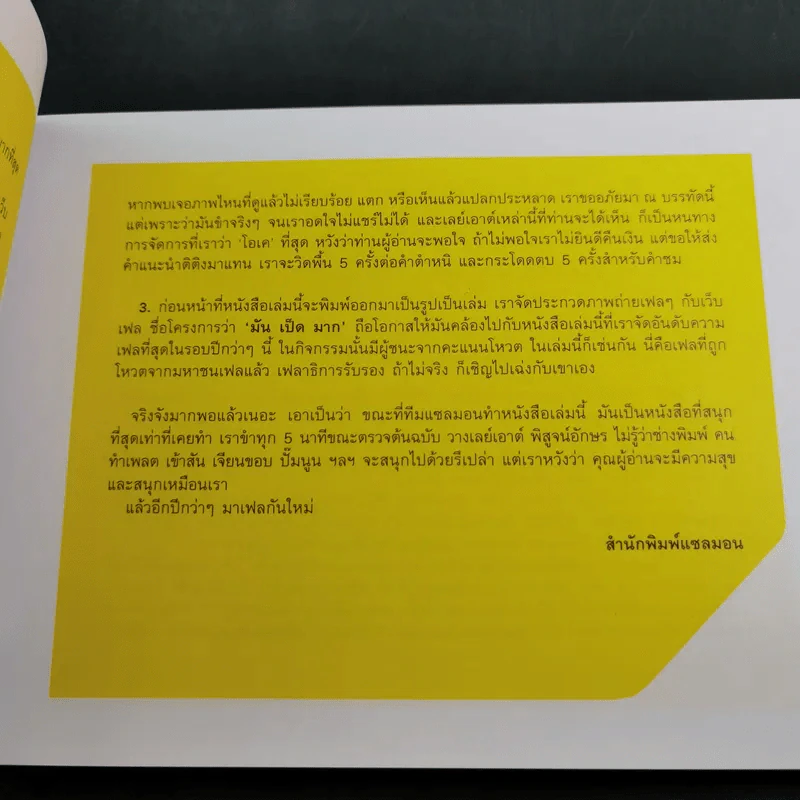 หากพบเจอภาพไหนที่ดูแล้วไม่เรียบร้อย แตก หรือเห็นแล้วแปลกประหลาด เราขออภัยมา ณ บรรทัดนี้
แต่เพราะว่ามันขำจริงๆ จนเราอดใจไม่แชร์ไม่ได้ และเลย์เอาต์เหล่านี้ที่ท่านจะได้เห็น ก็เป็นหนทาง
การจัดการที่เราว่า 'โอเค' ที่สุด หวังว่าท่านผู้อ่านจะพอใจ ถ้าไม่พอใจเราไม่ยินดีคืนเงิน แต่ขอให้ส่ง
คำแนะนำติติงมาแทน เราจะวิดพื้น 5 ครั้งต่อคำตำหนิ และกระโดดตบ 5 ครั้งสำหรับคำชม
3. ก่อนหน้าที่หนังสือเล่มนี้จะพิมพ์ออกมาเป็นรูปเป็นเล่ม เราจัดประกวดภาพถ่ายเฟลๆ กับเว็บ
เฟล ชื่อโครงการว่า 'มัน เป็ด มาก' ถือโอกาสให้มันคล้องไปกับหนังสือเล่มนี้ที่เราจัดอันดับความ
เฟลที่สุดในรอบปีกว่าๆ นี้ ในกิจกรรมนั้นมีผู้ชนะจากคะแนนโหวต ในเล่มนี้ก็เช่นกัน นี่คือเฟลที่ถูก
โหวตจากมหาชนเฟลแล้ว เฟลาธิการรับรอง ถ้าไม่จริง ก็เชิญไปเฉ่งกับเขาเอง
จริงจังมากพอแล้วเนอะ เอาเป็นว่า ขณะที่ทีมแซลมอนทำหนังสือเล่มนี้ มันเป็นหนังสือที่สนุก
ที่สุดเท่าที่เคยทำ เราขำทุก 5 นาทีขณะตรวจต้นฉบับ วางเลย์เอาต์ พิสูจน์อักษร ไม่รู้ว่าช่างพิมพ์ คน
ทำเพลต เข้าสัน เจียนขอบ ปั๊มนูน ฯลฯ จะสนุกไปด้วยรึเปล่า แต่เราหวังว่า คุณผู้อ่านจะมีความสุข
และสนุกเหมือนเรา
แล้วอีกปีกว่าๆ มาเฟลกันใหม่
สำนักพิมพ์แซลมอน